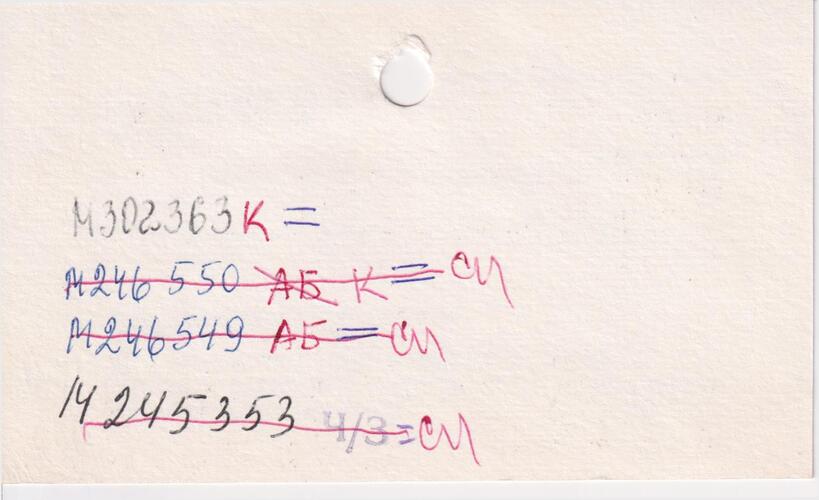 М302363 К =
М246550 АБ К = СП
М246549 АБ = СП
М245353 Ч/З = СП